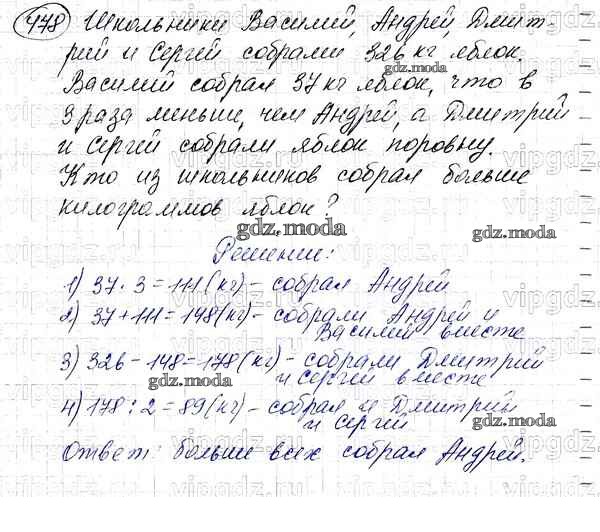 478 Школьники Василий, Андрей, Дмит-
рий и Сергей собрали 326 кг яблок.
gdz.moda
Василий собрал 37 кг яблок, что в
3 раза меньше, чем Андрей, а Дмитрий
и Сергей собрали яблок поровну.
Кто из школьников собрал больше
килограммов яблок?
gdz.moda
gdz.moda
Решение:
1) 37 · 3 = 111 (кг) - собрал Андрей
2) 37 + 111 = 148 (кг) - собрали Андрей и
Василий вместе
3) 326 - 148 = 178 (кг) - собрали Дмитрий
gdz.moda и Сергей вместе
4) 178 : 2 = 89 (кг) - собрал и Дмитрий
и Сергей gdz.moda
Ответ: больше всех собрал Андрей.